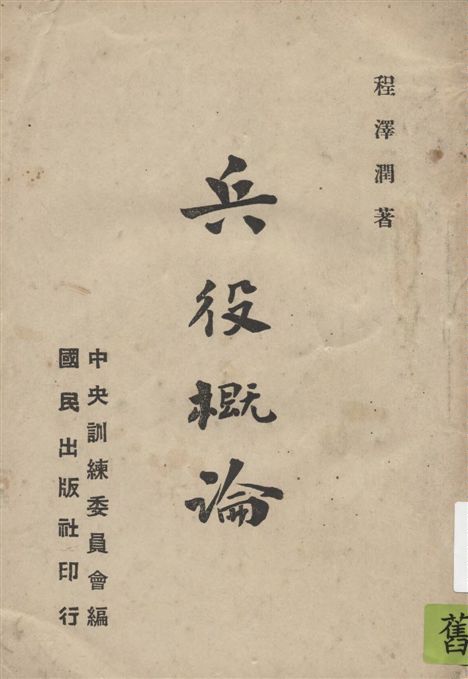 程澤潤著
兵役概論
中央訓練委員會編
國民出版社印行
舊